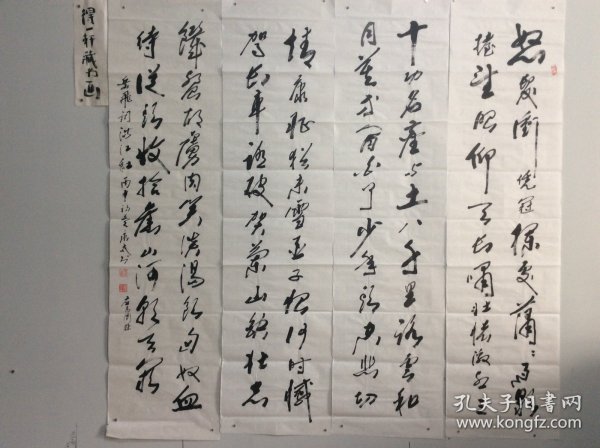 怒发衝凭冠栏处潇々雨歇
抬望眼仰天长啸壮怀激烈三
十功名尘与土八千里路云和
月莫等闲白了少年头空悲切
靖康耻犹未雪臣子恨何时憾
驾长车踏破贺兰山缺壮志
饥餐胡虏肉笑谈渴饮匈奴血
待从头收拾旧山河朝天阙
岳飞词满江红丙申初夏
一轩藏书画
孔夫子旧书网